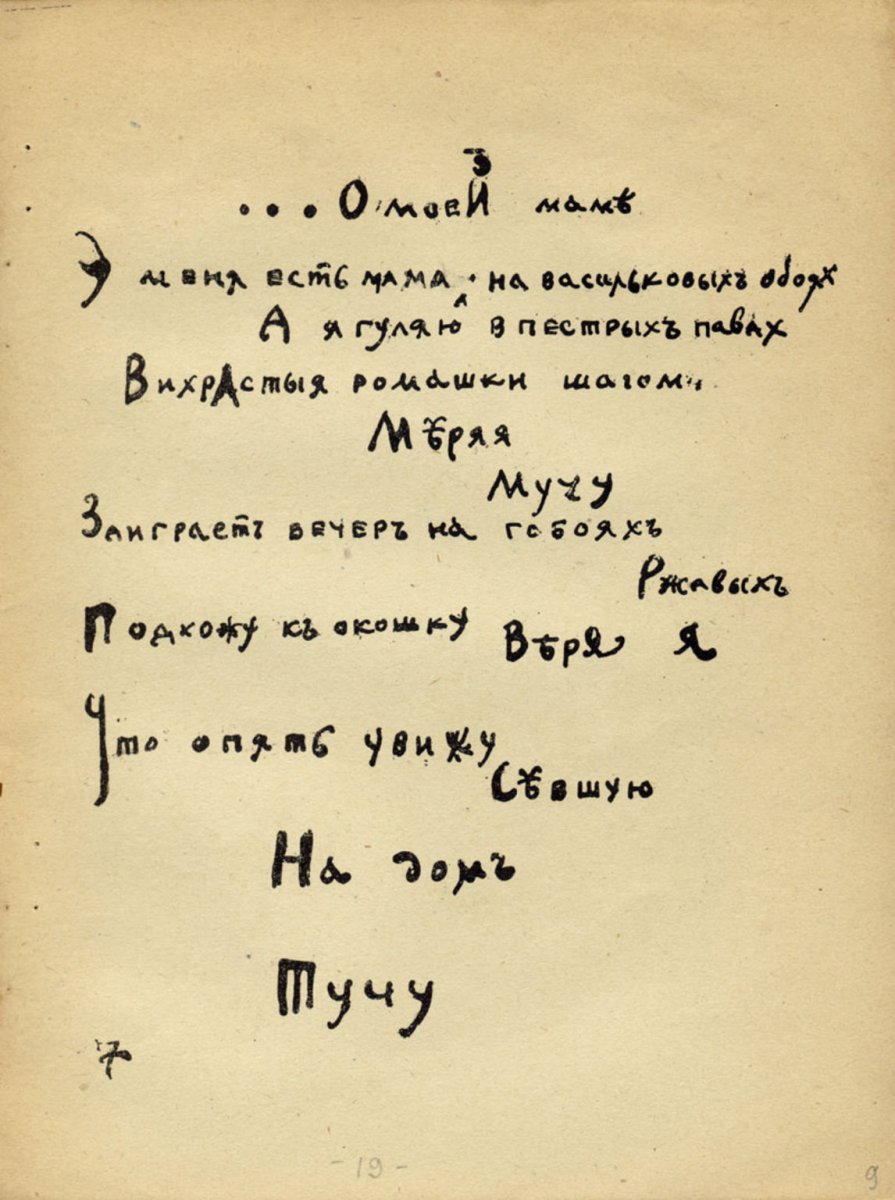 3
...О моей мамѣ
У меня есть мама на васильковыхъ обоях
А я гуляю в пестрыхъ павах
Вихрастыя ромашки шагом
Мѣряя
Мучу
Заиграетъ вечеръ на гобояхъ
Ржавыхъ
Подхожу къ окошку
Вѣря я
Что опять увижу
Сѣвшую
На домъ
Тучу
7
- 19 -
9